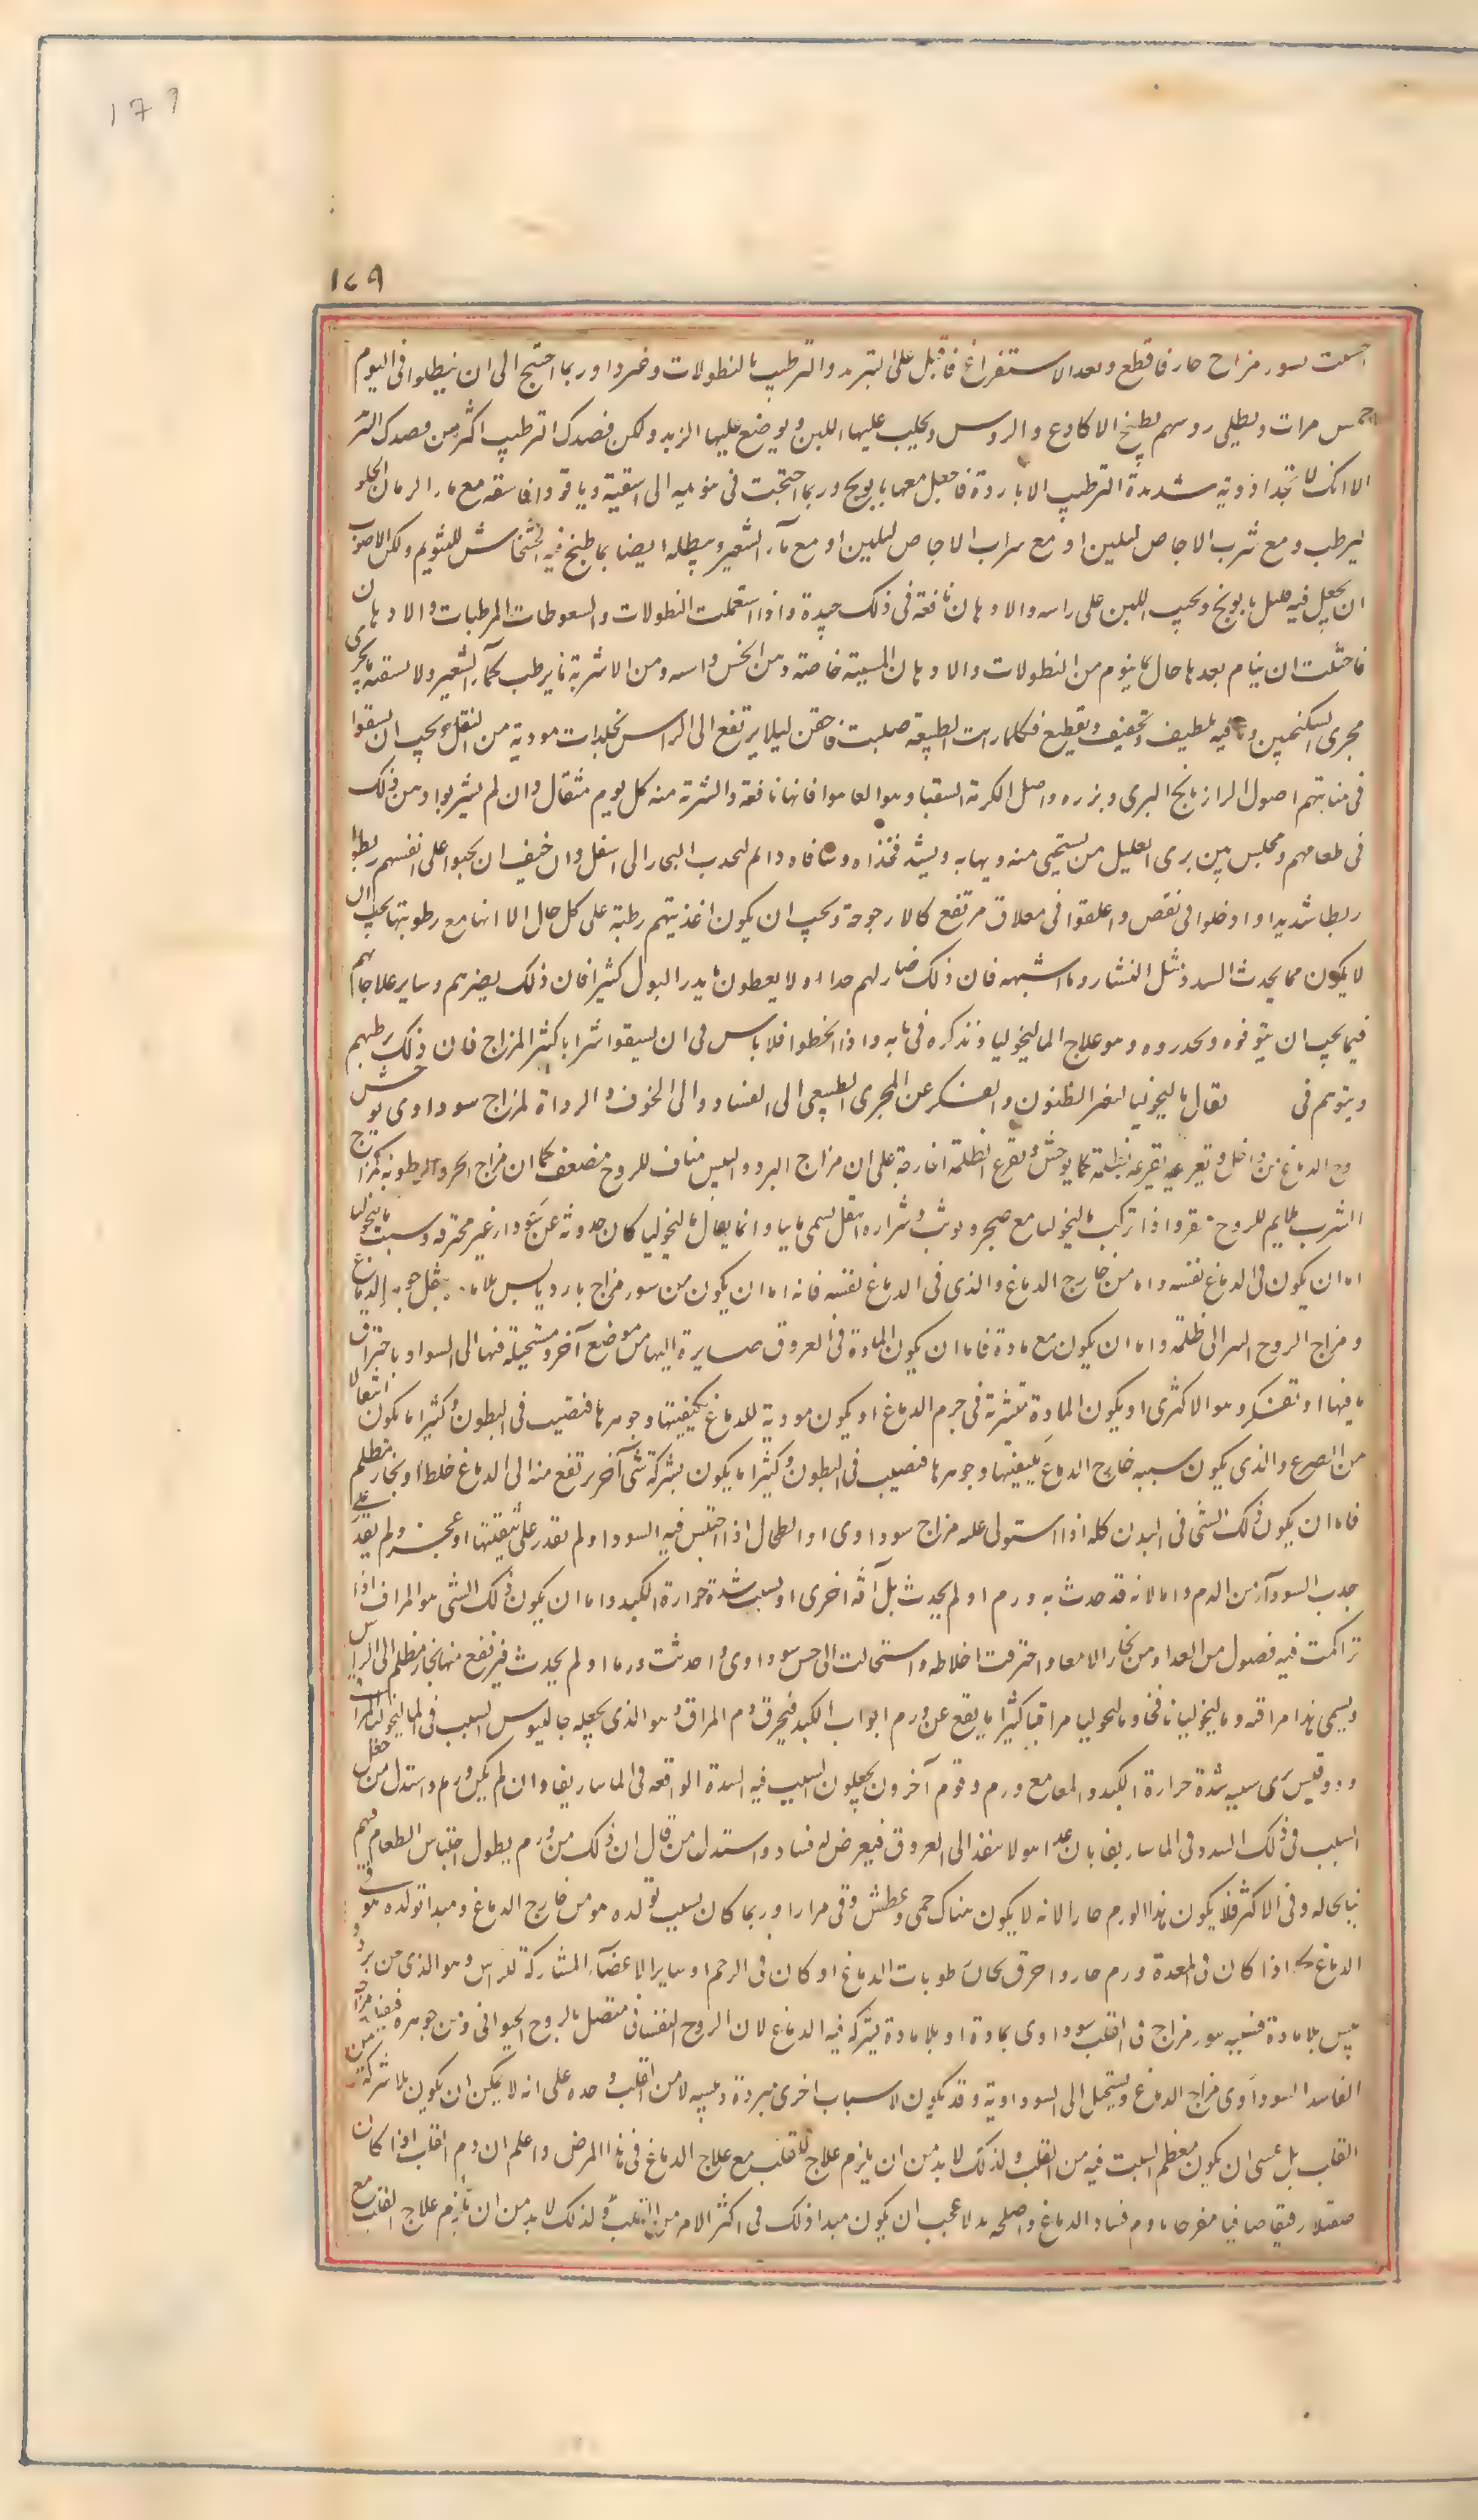 ١٧٩
١٧٩
احسست بسوء مزاج حار فاقطع وبعد الاستفراغ فاقبل على التبريد والترطيب بالنطولات وغيرها وربما احتيج الى ان ينطلوا فى اليوم
خمس مرات ويطلى روسهم بطبيخ الاكارع والروس ويحلب عليها اللبن ويوضع عليها الزبد ولكن قصدك الترطيب اكثر من قصدك
الا انك لا تجد ادوية شديدة الترطيب الا باردة فاجعل معها بابونج وربما احتجت فى تنويمه الى اسقية دياقودا فاسقه مع ماء الرمان الحلو
ليرطب ومع شرب الاجاص لتليين او مع شراب الاجاص لتليين او مع ماء الشعير وينطله ايضا بما طبخ فيه الخشخاش للتنويم ولكن الاصوب
ان يجعل فيه قليل بابونج ويحلب اللبن على راسه والادهان نافعة فى ذلك جيدة واذا استعملت النطولات والسعوطات المرطبات والادهان
فاحتلت ان ينام بعدها حال ما ينوم من النطولات والادهان المسبتة خاصة دهن الخس واسه ومن الاشربة ما يرطب كماء الشعير ولا يسقه ما يجرى
مجرى السكنجبين وما فيه تلطيف وتجفيف وتقطيع فكلما رايت الطبيعة صلبت فاحقن ليلا يرتفع الى الراس بخارات موذية من الثقل ويجب ان يسقوا
فى مياههم اصول الرازيانج البرى وبزره واصل الكرمة البيضا وهوالعاموا فانها نافعة والشربة منه كل يوم مثقال وان لم يشربوا دس ذلك
فى طعامهم ويجلس بين يدى العليل من يستحيى منه ويهابه ويشد فخذاه وساقاه دائما ليجذب البخار الى اسفل وان خيف ان يجنوا على انفسهم ربطوا
ربطا شديدا وادخلوا فى نقص واعلقوا فى معلاق مرتفع كالارجوحة ويجب ان يكون اغذيتهم رطبة على كل حال الا انها مع رطوبتها يجب ان
لا يكون مما يحدث السدد مثل النشا وما اشبهه فان ذلك ضار لهم جدا ولا يعطون ما يدر البول كثيرا فان ذلك يضرهم وساير علاجاتهم
فيما يجب ان يتوقوه ويحذروه هو علاج الماليخوليا ونذكره فى بابه واذا انحطوا فلا باس فى ان يسقوا شرابا كثير المزاج فان ذلك يرطبهم
وينومهم فى يقال ماليخوليا لتغير الظنون والفكر عن المجرى الطبيعى الى الفساد والى الخوف والرداة لمزاج سوداوى يوحش
روح الدماغ من داخل ويفزعه بظلمته كما يوحش ويفزع الظلمة الخارجة على ان مزاج البرد واليبس مناف للروح مضعف كما ان مزاج الحر والرطوبة كمزاج
الشرب ملايم للروح مقو واذا تركب ماليخوليا مع ضجر وتوثب وشرارة انتقل يسمى مانيا وانما يقال ماليخوليا كان حدوثه عن سوداء غير محترقة وسبب ماليخوليا
اما ان يكون فى الدماغ نفسه واما من خارج الدماغ والذى فى الدماغ نفسه فانه اما ان يكون من سوء مزاج بارد يابس بلا مادة ينقل جوهر الدماغ
ومزاج الروح النير الى ظلمة واما ان يكون مع مادة فاما ان يكون المادة فى العروق صايرة اليها من موضع آخر ومستحيلة فيها الى السواد باحتراق
ما فيها او تعكره وهو الاكثرى او يكون المادة متشربة فى جرم الدماغ او يكون موذية للدماغ بكيفيتها وجوهرها فتصب فى البطون وكثيرا ما يكون انتقالا
من الصرع والذى يكون سببه خارج الدماغ بكيفيتها وجوهرها فتصب فى البطون وكثيرا ما يكون بشركة شئ آخر يرتفع منه الى الدماغ خلط او بخار مظلم
فاما ان يكون ذلك الشئ فى البدن كله اذا استولى عليه مزاج سوداوى او الطحال اذا احتبس فيه السودا ولم يقدر على تنقيتها او عجز ولم يقدر على
جذب السوداء من الدم واما لانه قد حدث به ورم او لم يحدث بل آفة اخرى او لسبب شدة حرارة الكبد واما ان يكون ذلك الشئ هو المراق اذا
تراكمت فيه فضول من الغذاء ومن بخار الامعا واحترقت اخلاطه واستحالت الى جنس سوداوى واحدثت ورما او لم يحدث فيرتفع منها بخار مظلم الى الراس
ويسمى هذا مراقية وماليخوليا نافخا وماليخوليا مراقيا كثيرا ما يقع عن ورم ابواب الكبد فيحرق دم المراق وهو الذى يجعله جالينوس السبب فى الماليخوليا المراقى
ودوقليس يرى سببه شدة حرارة الكبد والمعا مع ورم وقوم آخرون يجعلون السبب فيه السدة الواقعة فى الماساريقا وان لم يكن ورم واستدل من جعل
السبب فى ذلك السدد فى الماساريقا بان غذاهم لا ينفذ الى العروق فيعرض له فساد واستدل من قال ان ذلك من ورم بطول احتباس الطعام فيهم
نيا بحاله وفى الاكثر فلا يكون هذا الورم حارا لانه لا يكون هناك حمى وعطش وقى مرارا وربما كان سبب تولده هو من خارج الدماغ ومبدا تولده هو فى
الدماغ كما اذا كان فى المعدة ورم حار واحرق بخاره رطوبات الدماغ او كان فى الرحم او ساير الاعضاء المشاركة للراس وهو الذى من برد و
يبس بلا مادة فسببه سوء مزاج فى القلب سوداوى بمادة او بلا مادة يشركه فيه الدماغ لان الروح النفسانى متصل بالروح الحيوانى ومن جوهره فيفسد مزاجه
الفاسد السوداوى مزاج الدماغ ويستحيل الى السوداوية وقد يكون لاسباب اخرى مبردة ميبسة لا من القلب وحده على انه لا يمكن ان يكون بلا شركة من
القلب بل عسى ان يكون معظم السبب فيه من القلب ولذلك لا بد من ان يلزم علاج القلب مع علاج الدماغ فى هذا المرض واعلم ان دم القلب اذا كان
صقيلا رقيقا صافيا مفرحا قاوم فساد الدماغ واصلحه ولا عجب ان يكون مبدا ذلك فى اكثر الامر من القلب ولذلك لا بد من ان يلزم علاج القلب مع